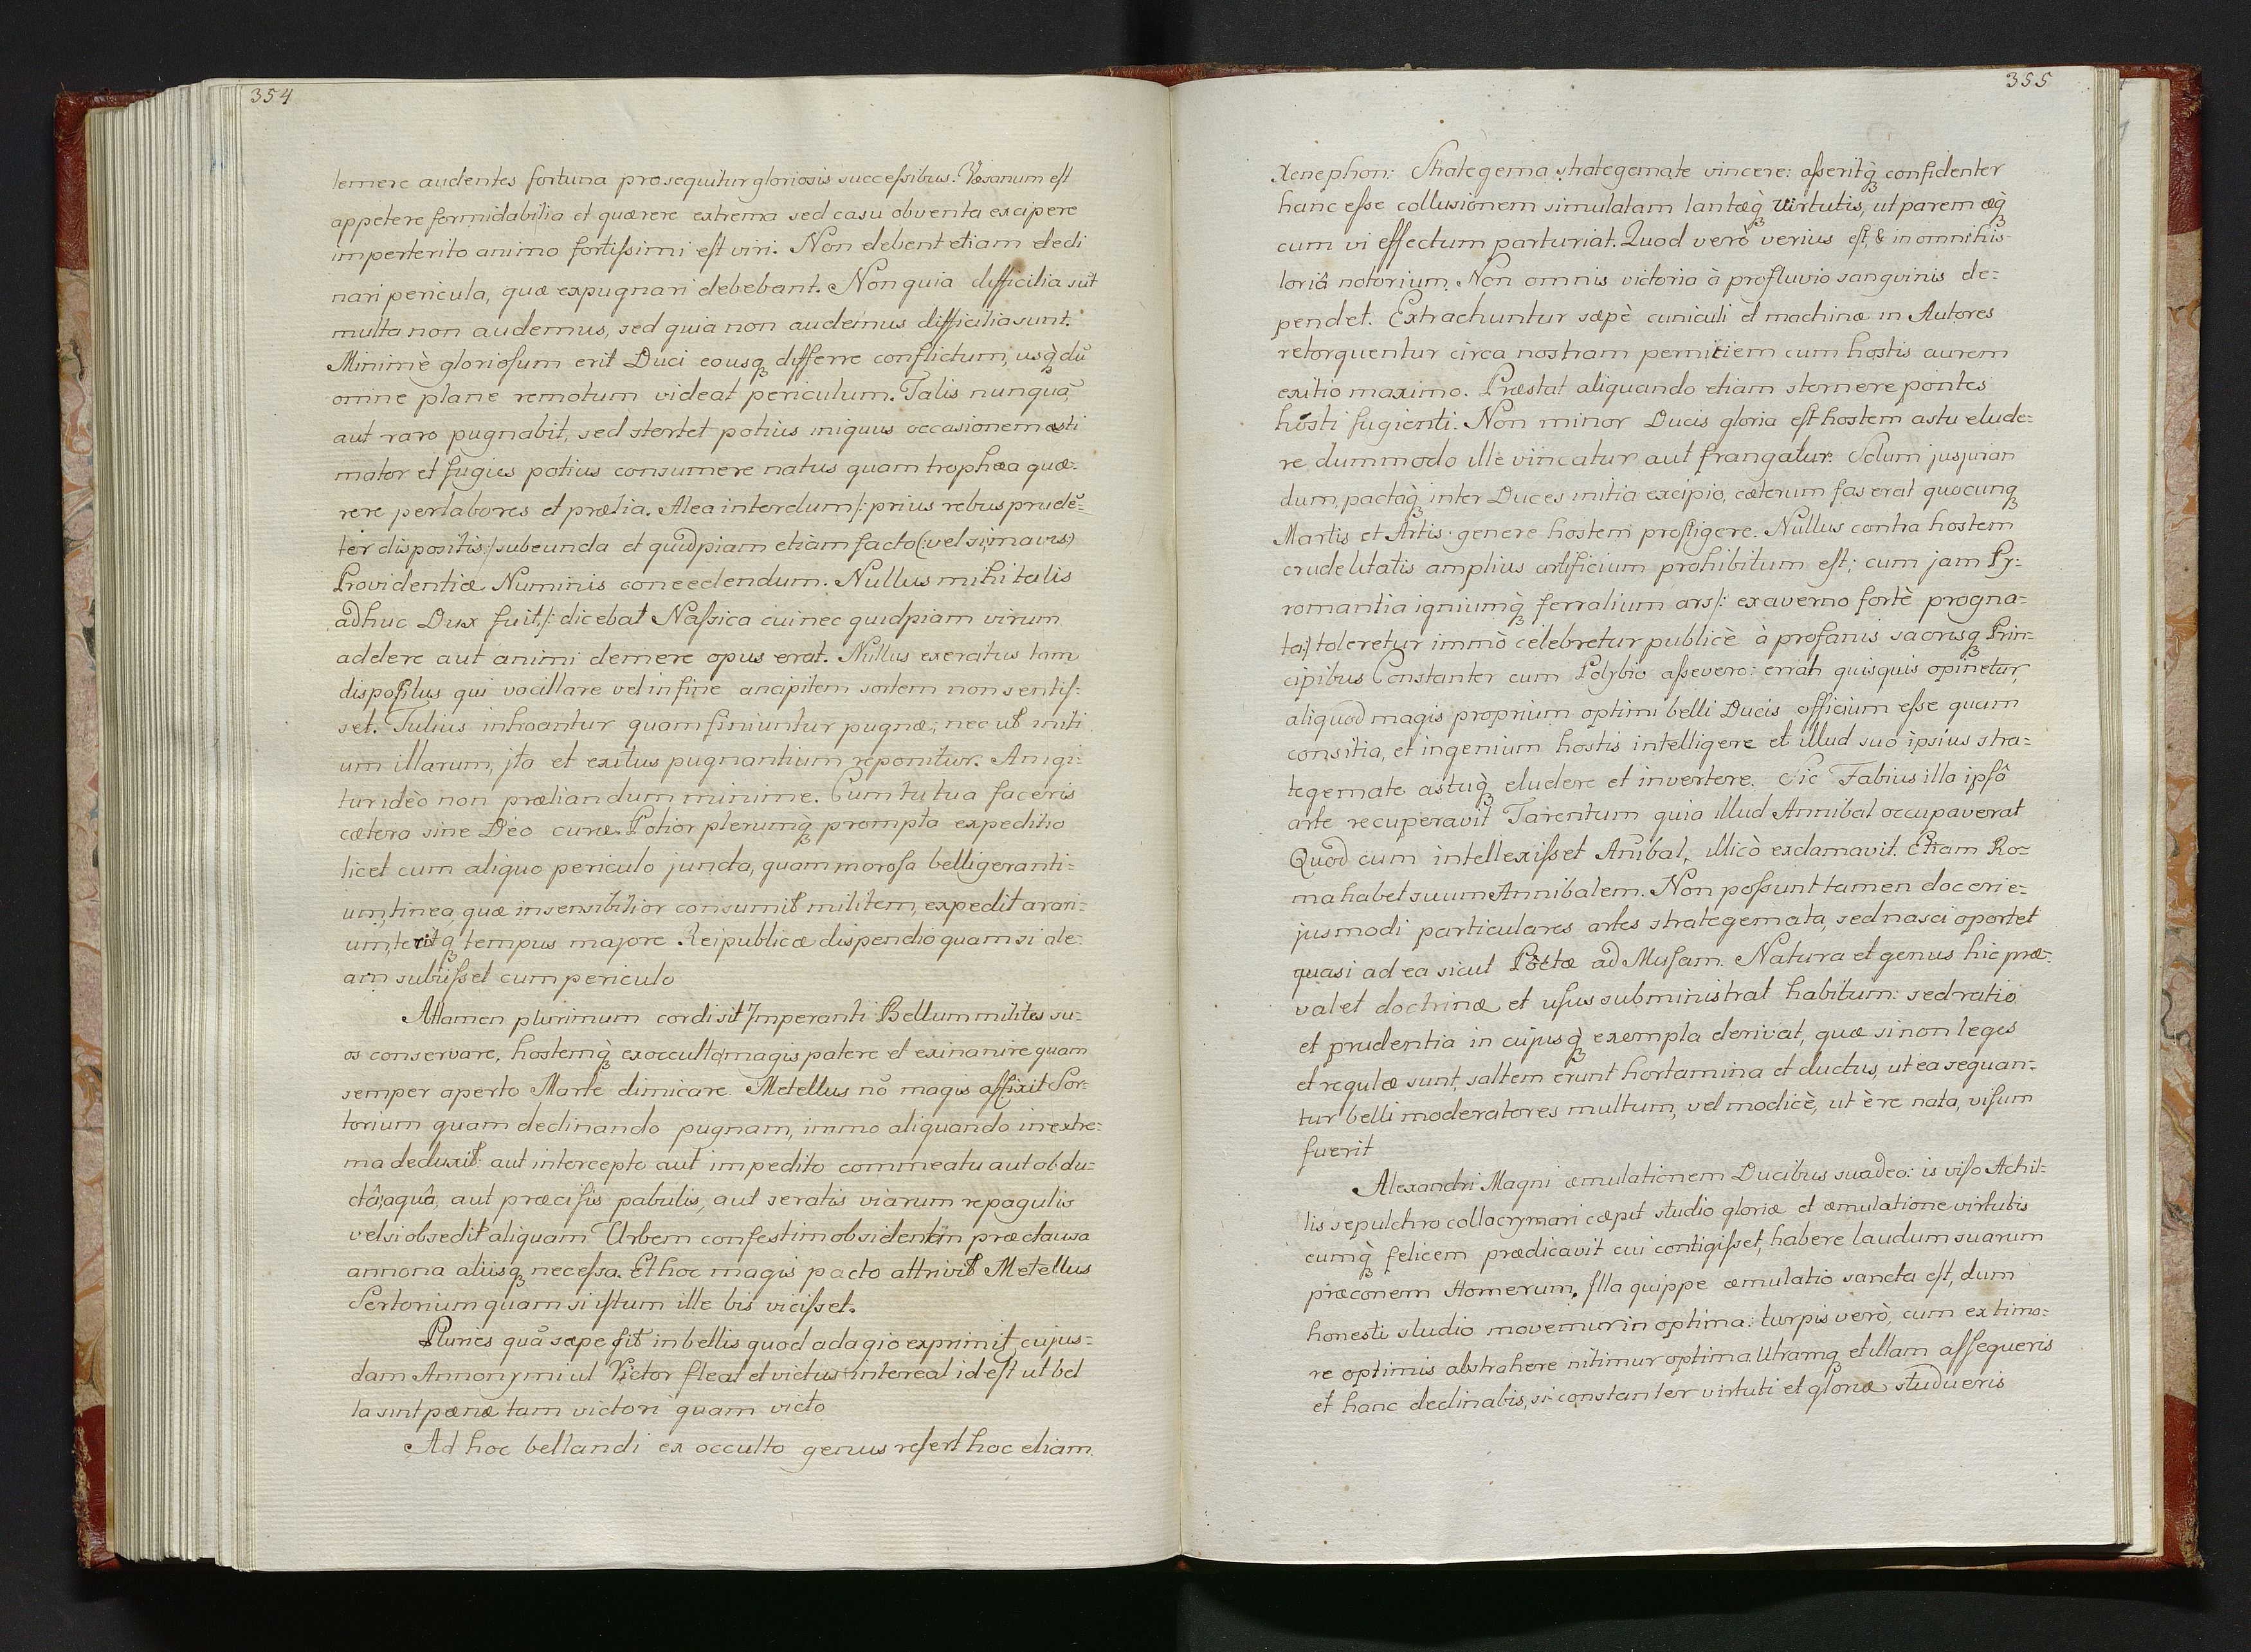 354
temere audentes fortuna prosequitur gloriosis successibus. Vesanum est
appetere formidabilia et quærere extrema sed casu obventa excipere
imperterito animo fortissimi est viri. Non debent etiam decli
nari pericula, quæ expugnari debebant. Non quia difficilia sūt
multa non audemus, sed quia non audemus difficilia sunt.
Minimè gloriosum erit Duci eousq3 differre conflictum, usq3 dū
omne plane remotum videat periculum. Talis nunquā
aut raro pugnabit, sed stertet potius iniquus occasionem æsti
mator et fugies potius consumere natus quam trophæa quæ-
rere per labores et prælia. Alea interdum /: prius rebus prudē-
ter dispositis :/ subeunda et quidpiam etiam facto (: vel si mavis :)
Providentiæ Numinis concedendum. Nullus mihi talis
adhuc Dux fuit, /: dicebat Nassica cui nec quidpiam virum
addere aut animi demere opus erat. Nullus exercitus tam
dispositus qui vacillare vel in fine ancipitem sortem non sentis-
set. Tutius inhoantur quam finiuntur pugnæ; nec ut initi
um illarum, jta et exitus pugnantium reponitur. An igi-
tur ideò non præliandum minime. Cum tu tua faceris
cætera sine Deo curæ. Potior plerumq3 prompta expeditio
licet cum aliquo periculo juncta, quam morosa belligeranti-
um, tinea quæ insensibilior consumit militem, expedit ærari-
um, teritq3 tempus majore Reipublicæ dispendio quam si ale-
am subiisset cum periculo
Attamen plurimum cordi sit Imperanti Bellum milites su-
os conservare, hostemq3 ex occulto magis patere et exinanire quam
semper aperto Marte dimicare. Metellus nō magis afflixit Ser-
torium quam declinando pugnam, immo aliquando in extre-
ma deduxit: aut intercepto aut impedito commeatu aut obdu-
ctâ aquâ, aut præcisis pabulis, aut seratis viarum repagulis
vel si obsedit aliquam Urbem confestim obsidentem præclausa
annona aliisq3 necessa. Et hoc magis pacto attrivit Metellus
Sertorium quam si istum ille bis vicisset.
Pluries quā sæpe fit in bellis quod adagio exprimit cujus-
dam Annonymi ut Victor fleat et victus intereat id est ut bel
la sint pœnæ tam victori quam victo
Ad hoc bellandi ex occulto genus refert hoc etiam
355
Xenephon: Strategema strategemate vincere: asseritq3 confidenter
hanc esse collusionem simulatam tantæq3 virtutis, ut parem æq3
cum vi effectum parturiat. Quod verò verius est, & in omni his-
toriâ notorium. Non omnis victoria à profluvio sangvinis de-
pendet. Extrachuntur sæpè cuniculi et machinæ in Autores
retorquentur circa nostram perniciem cum hostis aurem
exitio maximo. Præstat aliquando etiam sternere pontes
hosti fugienti. Non minor Ducis gloria est hostem astu elude-
re dummodo ille vincatur aut frangatur. Solum jusjuran
dum, pactaq3 inter Duces initia excipio, cæterum fas erat quocunq3
Martis et Artis genere hostem profligere. Nullus contra hostem
crudelitatis amplius artificium prohibitum est; cum jam Py-
romantia igniumq3 ferralium ars /: ex averno fortè progna-
ta :/ toleretur immò celebretur publicè à profanis sacrisq3 Prin-
cipibus Constanter cum Polybio assevero: errat quisquis opinetur,
aliquod magis proprium optimi belli Ducis officium esse quam
consilia, et ingenium hostis intelligere et illud suo ipsius stra-
tegemate astuq3 eludere et invertere. Sic Fabius illa ipsô
arte recuperavit Tarentum quia illud Annibal occupaverat
Quod cum intellexisset Anībal, illicò exclamavit. Etiam Ro-
ma habet suum Annibalem. Non possunt tamen doceri e-
jusmodi particulares artes strategemata, sed nasci oportet
quasi ad ea sicut Poëtæ ad Musam. Natura et genus hic præ-
valet doctrinæ et usus subministrat habitum: sed ratio
et prudentia in cujusq3 exempla derivat, quæ si non leges
et regulæ sunt, saltem erunt hortamina et ductus, ut ea sequan-
tur belli moderatores multum, vel modicè, ut è re nata, visum
fuerit
Alexandri Magni æmulationem Ducibus suadeo: is viso Achil-
lis sepulchro collacrymari cæpit studio gloriæ et æmulatione virtutis
eumq3 felicem prædicavit cui contigisset, habere laudum suarum
præconem Homerum. Illa quippe æmulatio sancta est, dum
honesti studio movemur in optima: turpis verò, cum ex timo-
re optimis abstrahere nitimur optima. Utramq3 et illam assequeris
et hanc declinabis, si constanter virtuti et gloriæ studueris